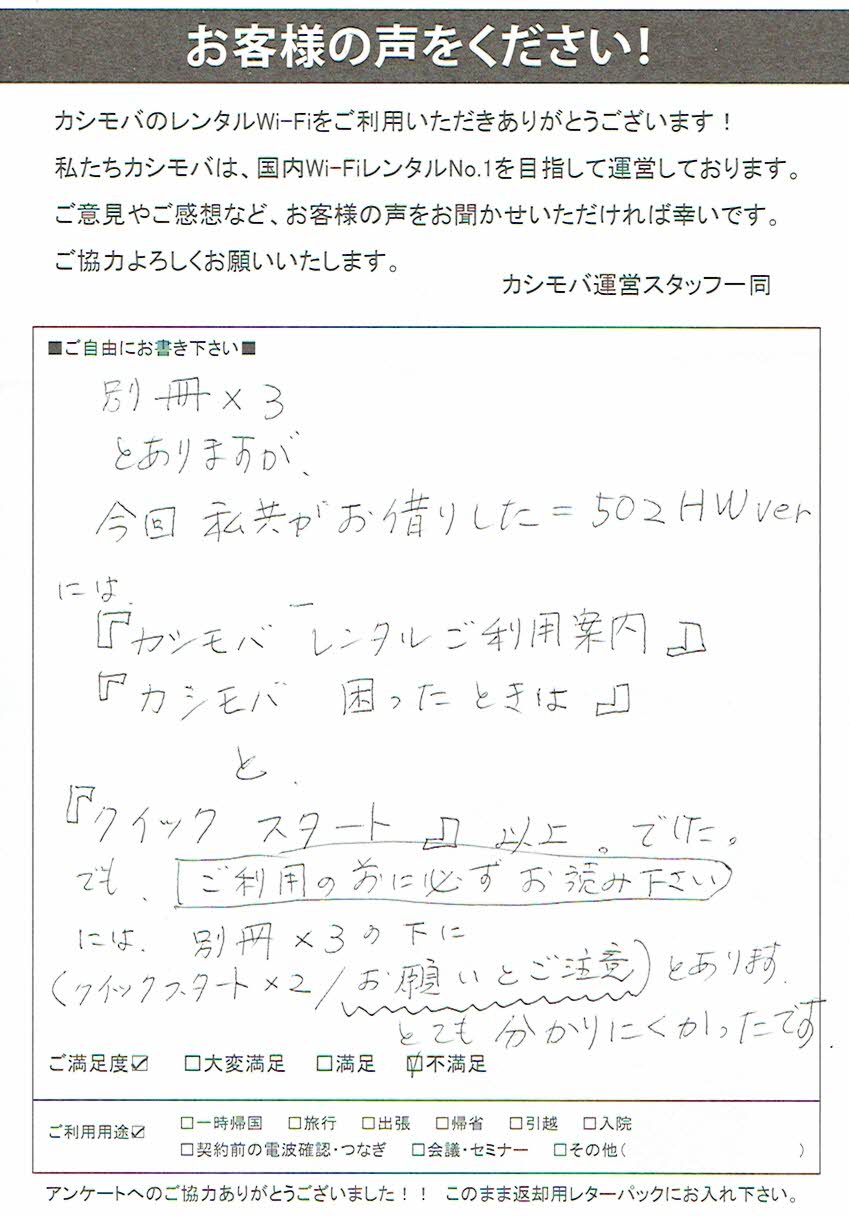 お客様の声をください!
カシモバのレンタルWi-Fiをご利用いただきありがとうございます！
私たちカシモバは、国内Wi-FiレンタルNo.1を目指して運営しております。
ご意見やご感想など、お客様の声をお聞かせいただければ幸いです。
ご協力よろしくお願いいたします。
カシモバ運営スタッフ一同
■ご自由にお書き下さい■
別冊×3
とありますが、
今回 私共がお借りした=502HWver
には、
『カシモバ レンタルご利用案内』
『カシモバ 困ったときは』
と、
『クイック スタート』以上。でした。
でも、ご利用の前に必ずお読み下さい
には、別冊×3の下に
(クイックスタート×2/お願いとご注意)とあります。
とても分かりにくかったです.
ご満足度☑ □大変満足 □満足 ☑不満足
ご利用用途☑ □一時帰国 □旅行 □出張 □帰省 □引越 □入院
□契約前の電波確認・つなぎ □会議・セミナー □その他( )
アンケートへのご協力ありがとうございました！！ このまま返却用レターパックにお入れ下さい。